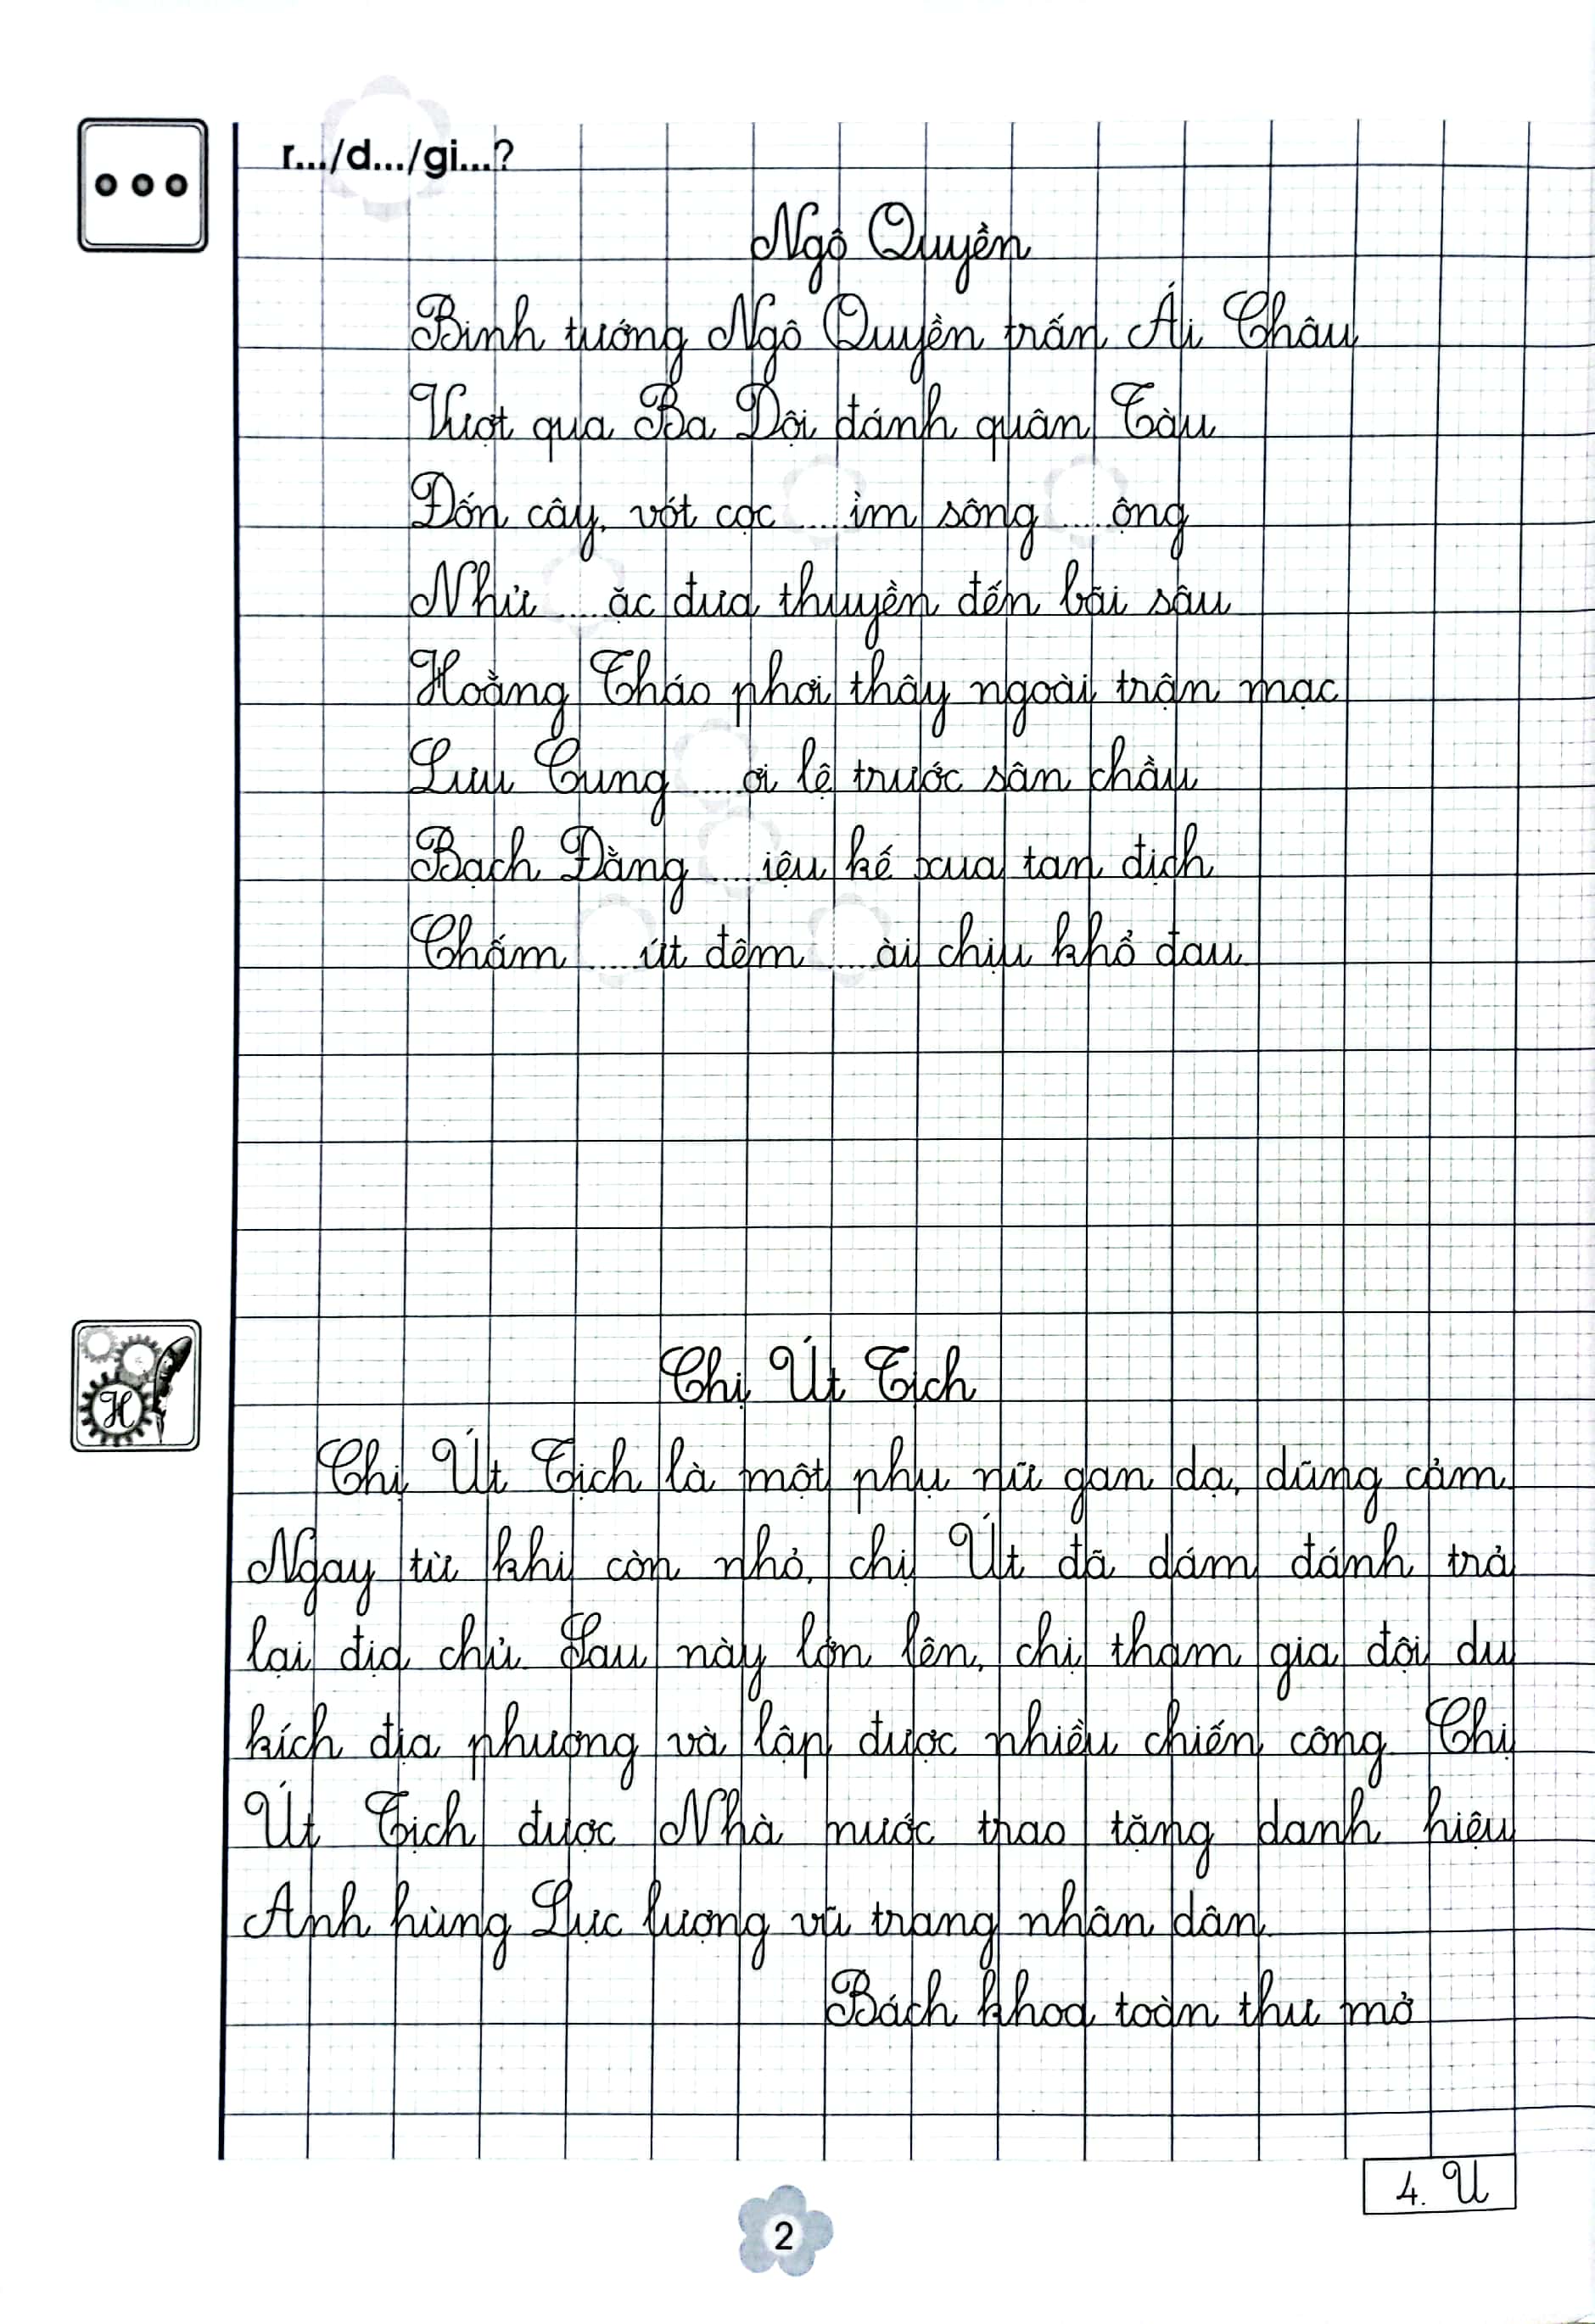 r.../d.../gi...?
Ngô Quyền
Binh tướng Ngô Quyền trấn Ái Châu
Vượt qua Ba Dội đánh quân Tàu
Đốn cây, vót cọc ....ìm sông ....ộng
Nhử ....ặc đưa thuyền đến bãi sâu
Hoằng Tháo phơi thây ngoài trận mạc
Lưu Cung ....ơi lệ trước sân chầu
Bạch Đằng ....iệu kế xua tan địch
Chấm ....út đêm ....ài chịu khổ đau.
H
Chị Út Tịch
Chị Út Tịch là một phụ nữ gan dạ, dũng cảm.
Ngay từ khi còn nhỏ, chị Út đã dám đánh trả
lại địa chủ. Sau này lớn lên, chị tham gia đội du
kích địa phương và lập được nhiều chiến công. Chị
Út Tịch được Nhà nước trao tặng danh hiệu
Anh hùng Lực lượng vũ trang nhân dân.
Bách khoa toàn thư mở
4. U
2